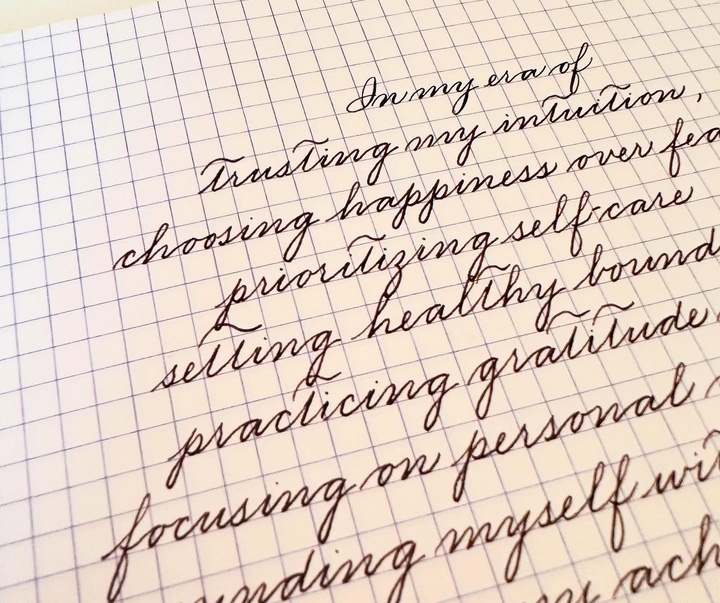 In my era of
Trusting my intuition,
choosing happiness over
prioritizing self-care
setting healthy
practicing gratitude
focusing on personal
myself